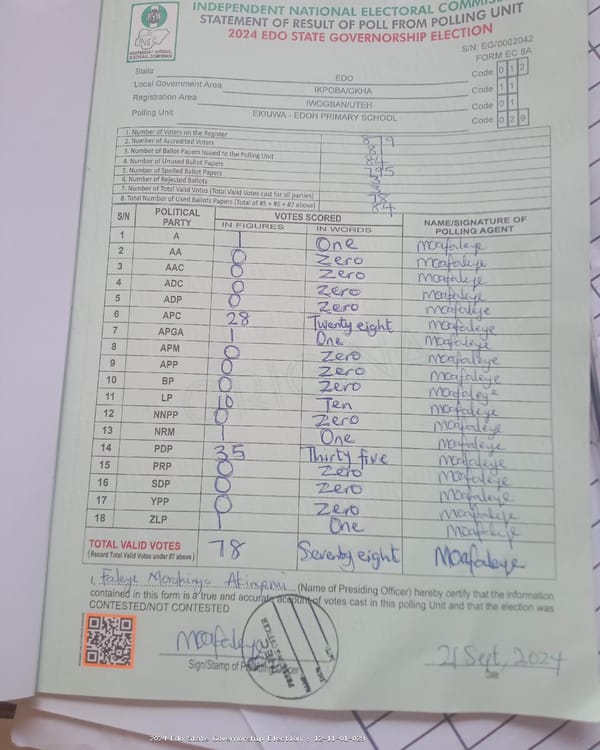 INDEPENDENT NATIONAL ELECTORAL COMMISS
STATEMENT OF RESULT OF POLL FROM POLLING UNIT
2024 EDO STATE GOVERNORSHIP ELECTION
INDEPENDENT NATIONAL ELECTORAL COMMISSION
S/N: EG/0002042
FORM EC 8A
State EDO Code 0 1 2
Local Government Area IKPOBA/OKHA Code 1 1
Registration Area IWOGBAN/UTEH Code 0 1
Polling Unit EKIUWA - EDOH PRIMARY SCHOOL Code 0 2 9
1. Number of Voters on the Register 879
2. Number of Accredited Voters 81
3. Number of Ballot Papers Issued to the Polling Unit
4. Number of Unused Ballot Papers 795
5. Number of Spoiled Ballot Papers 3
6. Number of Rejected Ballots 3
7. Number of Total Valid Votes (Total Valid Votes cast for all parties) 78
8. Total Number of Used Ballots Papers (Total of #5 + #6 + #7 above) 84
S/N POLITICAL PARTY VOTES SCORED NAME/SIGNATURE OF POLLING AGENT
IN FIGURES IN WORDS
1 A 1 One moafaleye
2 AA 0 Zero moafaleye
3 AAC 0 Zero moafaleye
4 ADC 0 Zero moafaleye
5 ADP 0 Zero moafaleye
6 APC 28 Twenty eight moafaleye
7 APGA 1 One moafaleye
8 APM 0 Zero moafaleye
9 APP 0 Zero moafaleye
10 BP 0 Zero moafaleye
11 LP 10 Ten moafaleye
12 NNPP 0 Zero moafaleye
13 NRM 1 One moafaleye
14 PDP 35 Thirty five moafaleye
15 PRP 0 Zero moafaleye
16 SDP 0 Zero moafaleye
17 YPP 0 Zero moafaleye
18 ZLP 1 One moafaleye
TOTAL VALID VOTES 78 Seventy eight Moafaleye
(Record Total Valid Votes under #7 above)
I, Faleye Morakinyo Akinyemi (Name of Presiding Officer) hereby certify that the information
contained in this form is a true and accurate account of votes cast in this polling Unit and that the election was
CONTESTED/NOT CONTESTED
moafaleye 21 Sept, 2024
Sign/Stamp of Officer Date
2024 Edo State Governorship Election - 12-11-01-029